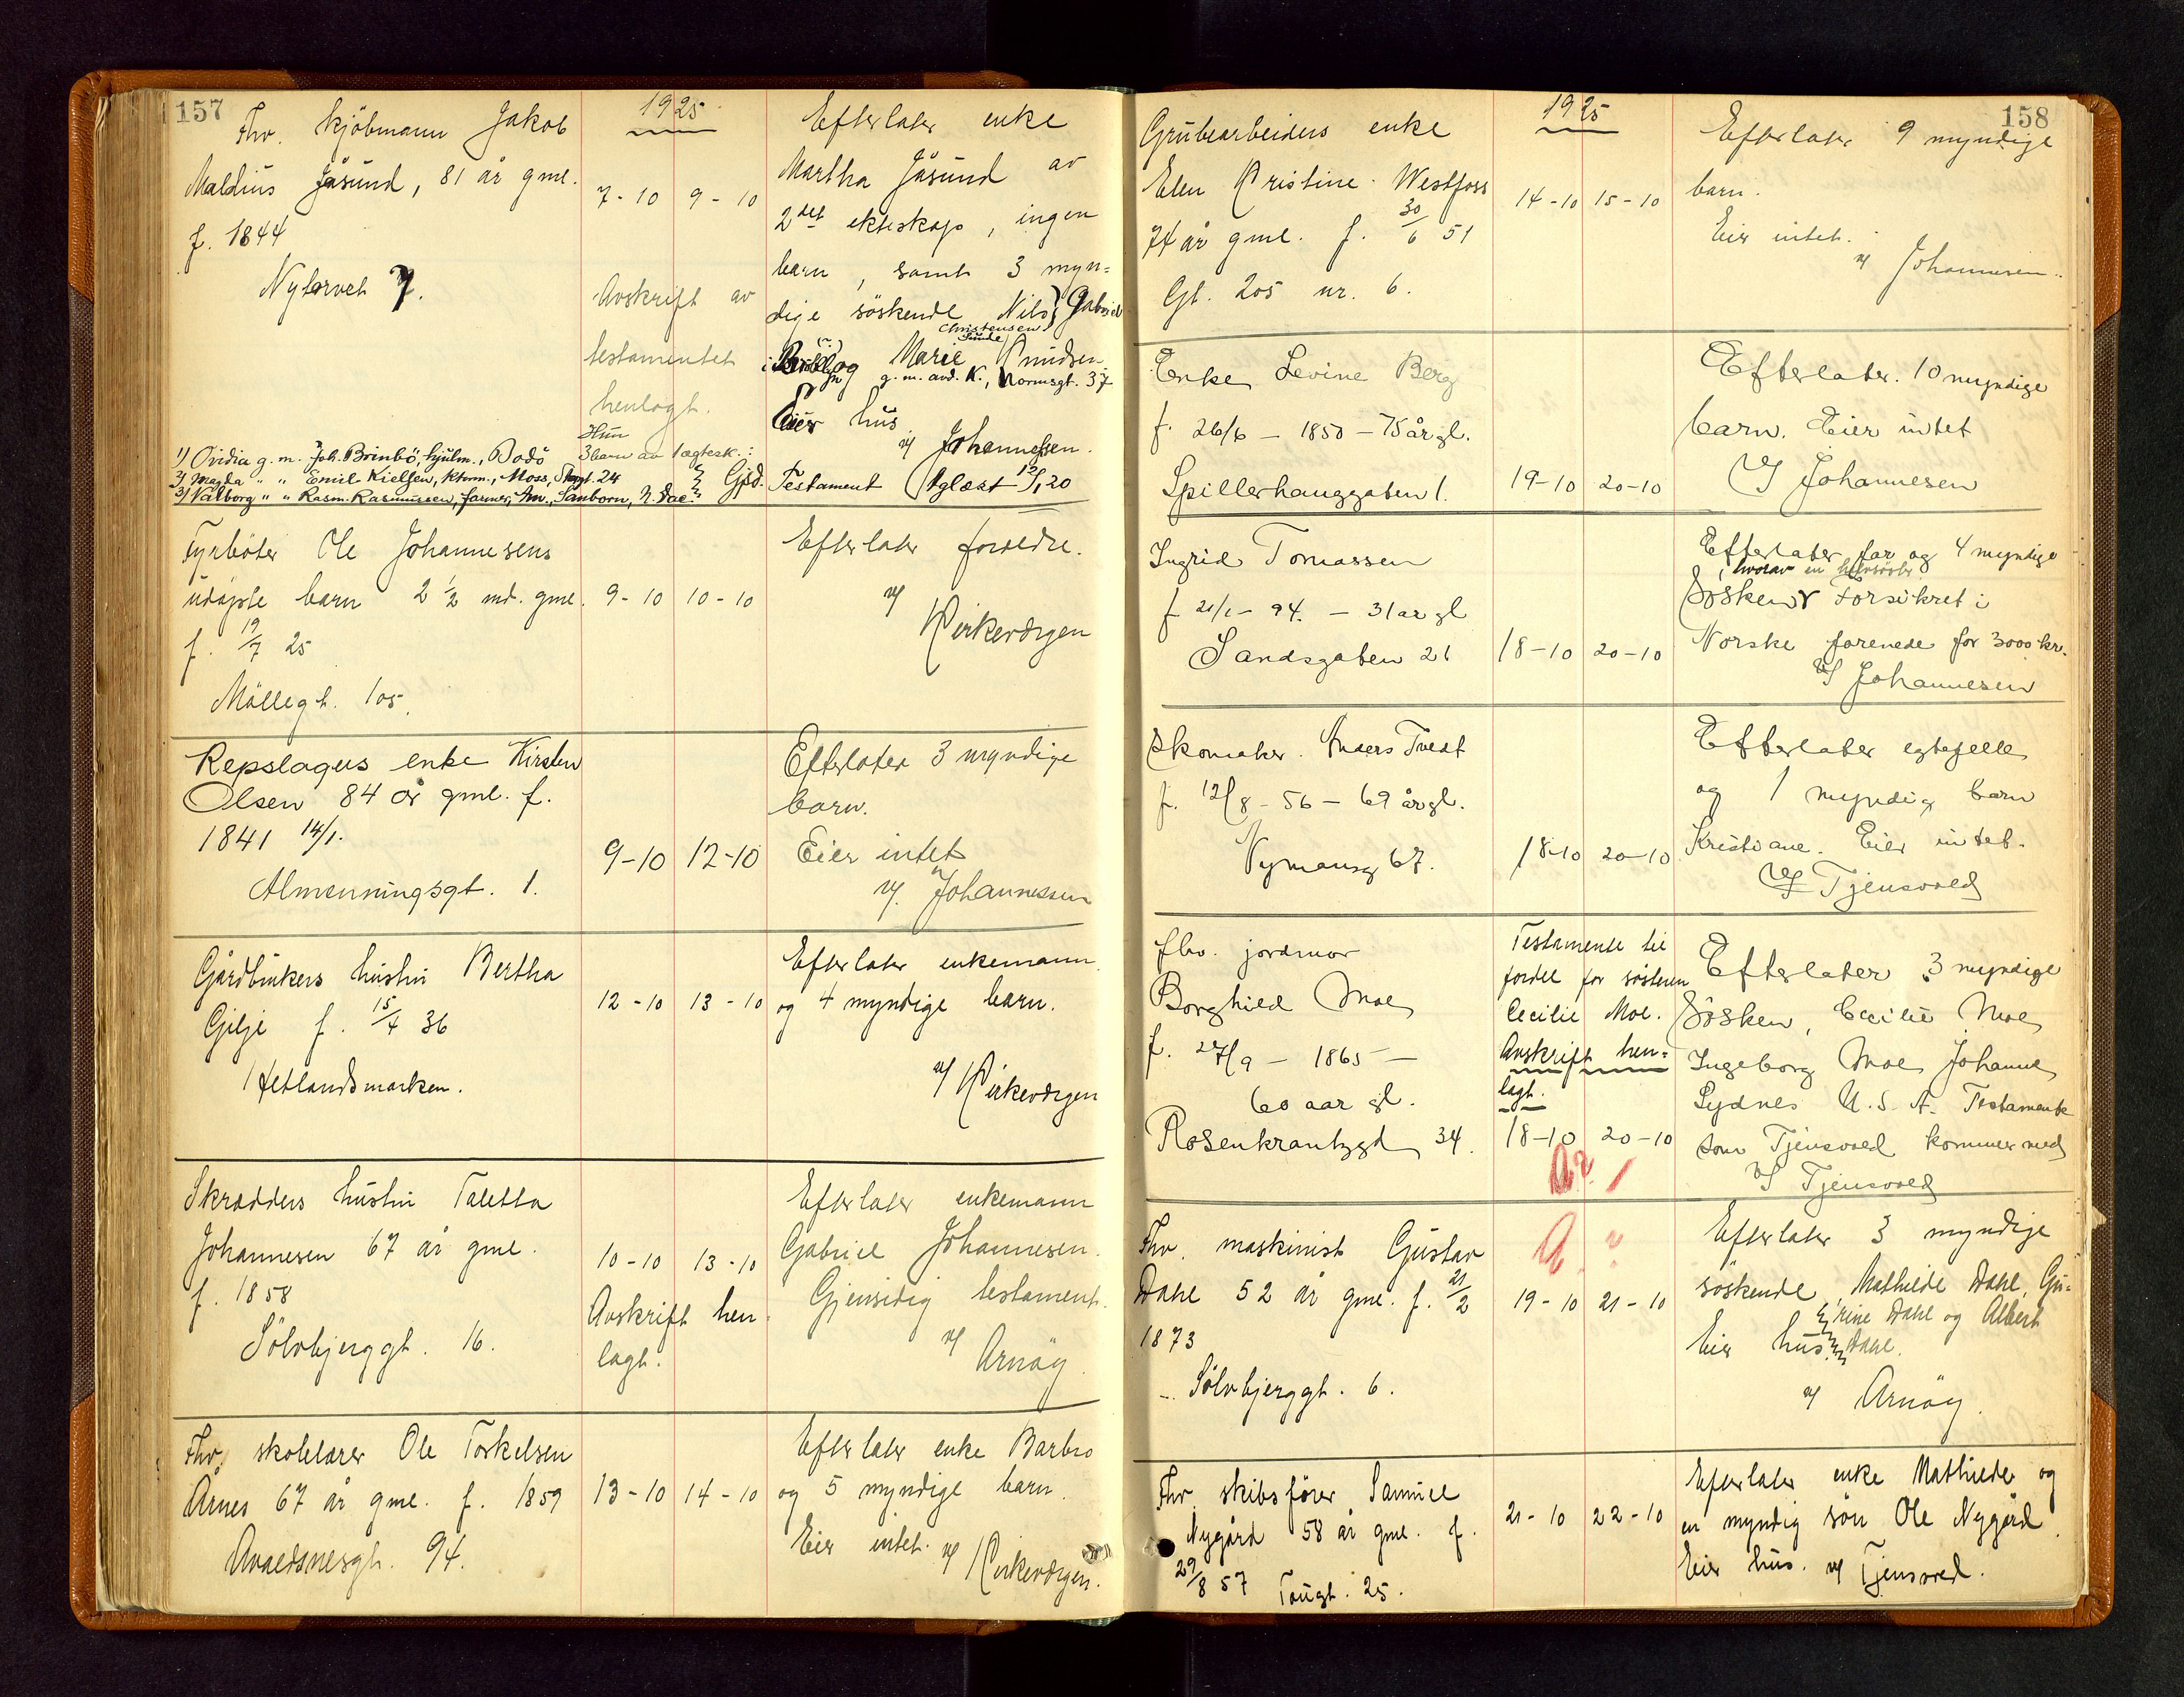 157
1925
Fhv. kjöbmann Jakob
Maldius Jåsund, 81 år gml.
f. 1844
Nytorvet 7.
7-10 9-10
Avskrift av
testamentet
henlagt.
Efterlater enke
Martha Jåsund av
2det ekteskap, ingen
barn, samt 3 myn=
dige söskende Nils, Gabriel
Christensen
Sunde
og Marie Knudsen
g. m. avd. K., Normsgt. 37
Eier hus
v/ Johannessen.
Hun
3 barn av 1 ægtesk.:
1) Ovidia g. m. Joh. Brinbö, hjulm., Bodö
2) Magda " " Emil Kielsen, khvm., Moss, Skogt. 24
3) Valborg " " Rasm. Rasmussen, farmer, Mn., Sanborn, N. Dac.
Gjsd. Testament tglæst 13/1 20
Fyrböter Ole Johannesens
udöpte barn 2 1/2 md. gml.
f. 19/7 25
Möllegt. 105.
9-10 10-10
Efterlater foreldre.
v/
Kirkeværgen
Repslagers enke Kirsten
Olsen 84 år gml. f.
1841 14/1.
Almenningsgt. 1.
9-10 12-10
Efterlater 3 myndige
barn.
Eier intet
v/. Johannessen
Gårdbrukers hustru Bertha
Gilje f. 15/4 36
Hetlandsmarken.
12-10 13-10
Efterlater enkemann
og 4 myndige barn.
v/ Kirkeværgen
Skrædders hustru Taletta
Johannesen 67 år gml.
f. 1858
Sölvbjerggt. 16.
10-10 13-10
Avskrift hen
lagt.
Efterlater enkemann
Gabriel Johannesen.
Gjensidig testament.
v/ Arnöy.
Fhv. skolelærer Ole Torkelsen
Årnes 67 år gml. f. 1859
Avaldsnesgt. 94.
13-10 14-10
Efterlater enke Barbro
og 5 myndige barn.
Eier intet. v/ Kirkeværgen.
158
1925
Grubearbeiders enke
Elen Kristine Westfoss
74 år gml. f. 30/6 51
Gt. 205 nr. 6.
14-10 15-10
Efterlater 9 myndige
barn.
Eier intet.
v/ Johannesen.
Enke Levine Berg
f. 26/6 - 1850 - 75 år gl.
Spillerhauggaten 1.
19-10 20-10
Efterlater. 10 myndige
barn. Eier intet
v/ Johannesen
Ingrid Tomassen
f 21/1 - 94. - 31 år gl
Sandsgaten 21
18-10 20-10
Efterlater far og 4 myndige
, hvorav en helsöster
Sösken Forsikret i
Norske forenede for 3000 kr.
v/ Johannesen
Skomaker. Anders Tvedt
f. 12/8 - 56 - 69 år gl.
Nymansg 67.
18-10 20-10
Efterlater egtefelle
og 1 myndig barn
Kristiane. Eier intet.
v/ Tjensvold
fhv. jordmor
Borghild Moe
f. 27/9 - 1865 -
60 aar gl.
Rosenkrantzgt 34.
Testamente til
fordel for søsteren
Cecilie Moe.
Avskrift hen=
lagt.
18-10 20-10
Efterlater 3 myndige
Sösken, Cecilie Moe
Ingeborg Moe Johanne
Lydnes U. S. A. Testamente
som Tjensvold kommer med
v/ Tjensvold
Fhv. maskinist Gustav
Dahl 52 år gml. f. 21/2
1873
Sölvbjerggt. 6.
19-10 21-10
Efterlater 3 myndige
söskende, Mathilde Dahl, Gu-
rine Dahl og Albert
Dahl.
Eier hus.
v/ Arnöy.
Fhv. skibsfører Samuel
Nygård 58 år gml. f.
29/8 57 Taugt. 25.
21-10 22-10
Efterlater enke Mathilde og
en myndig sön Ole Nygård.
Eier hus. v/ Tjensvold.